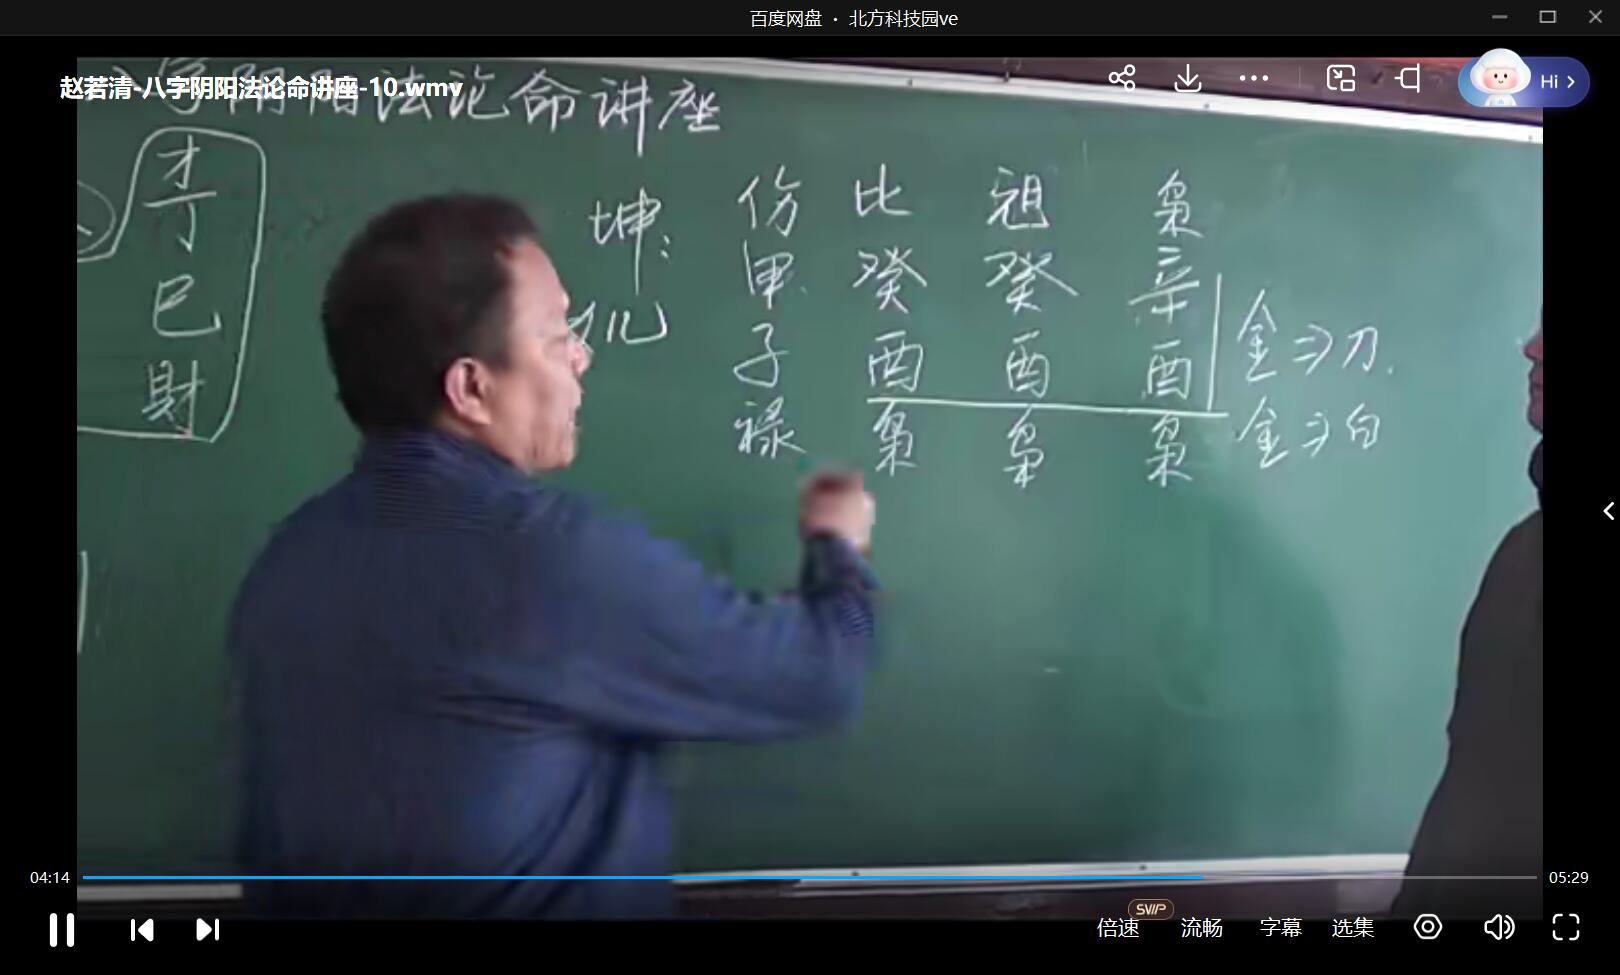 百度网盘 · 北方科技园ve
赵若清-八字阴阳法论命讲座-10.wmv
Hi
字阴阳法论命讲座
才
丁
巳
財
坤:
伤 比 祖 枭
甲 癸 癸 辛
子 酉 酉 酉
禄 枭 枭 枭
金⇒刀.
金⇒白
04:14
05:29
SVIP
倍速 流畅 字幕 选集